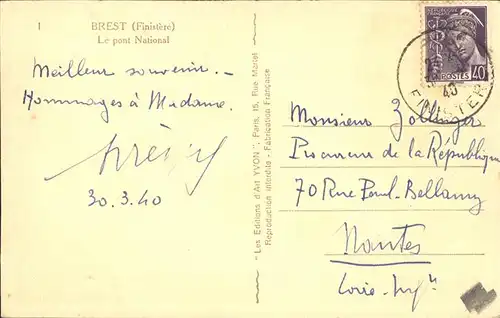 1
BREST (Finistère)
Le pont National
Meilleur souvenir. -
Hommages à Madame.
30.3.40
"Les Editions d'Art YVON", Paris, 15, Rue Martel
Reproduction interdite - Fabrication Française
POSTES 40
40
FINISTERE
Monsieur Zollinger
Procureur de la République
70 Rue Paul-Bellamy
Nantes
Loire-Infre